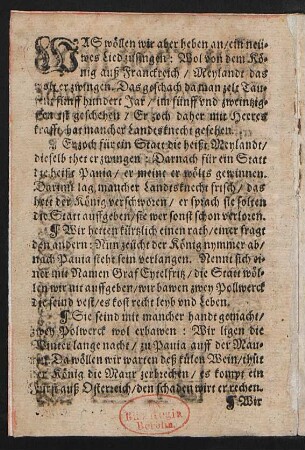 WAS wöllen wir aber heben an/ ein neü-
wes Lied zůsingen: Wol von dem Kö-
nig auß Franckreich / Meylandt das
wolt er zwingen. Das geschach da man zelt Tau-
sent fünff hundert Jar/ im fünff vnd zweintzig-
sten ist geschehen / Er zoch daher mit Heeres
krafft/ hat mancher Landtsknecht gesehen.
¶ Er zoch für ein Statt die heißt Meylandt/
dieselb thet er zwingen: Darnach für ein Statt
die heißt Pauia/ er meint er wölts gewinnen.
Darinn lag mancher Landtsknecht frisch/ das
hett der König verschworen/ er sprach sie solten
die Statt auffgeben/ sie wer sonst schon verloren.
¶ Wir hetten kürtzlich einen rath/ einer fragt
den andern: Nun zeücht der König nymmer ab/
nach Pauia steht sein verlangen. Nennt sich ei-
ner mit Namen Graf Eytelfritz/ die Statt wöl-
len wir nit auffgeben/ wir bawen zwey Pollwerck
die seind vest/ es kost recht leyb vnd Leben.
¶ Sie seind mit mancher handt gemacht/
zwey Polwerck wol erbawen: Wir ligen die
Winter lange nacht/ zu Pauia auff der Mau-
ren. Da wöllen wir warten deß külen Wein/ thůt
der König die Maur zerbrechen/ es kompt ein
Fürst auß Osterreich/ den schaden wirt er rechen.
¶ Wir
Regia
Berolin.